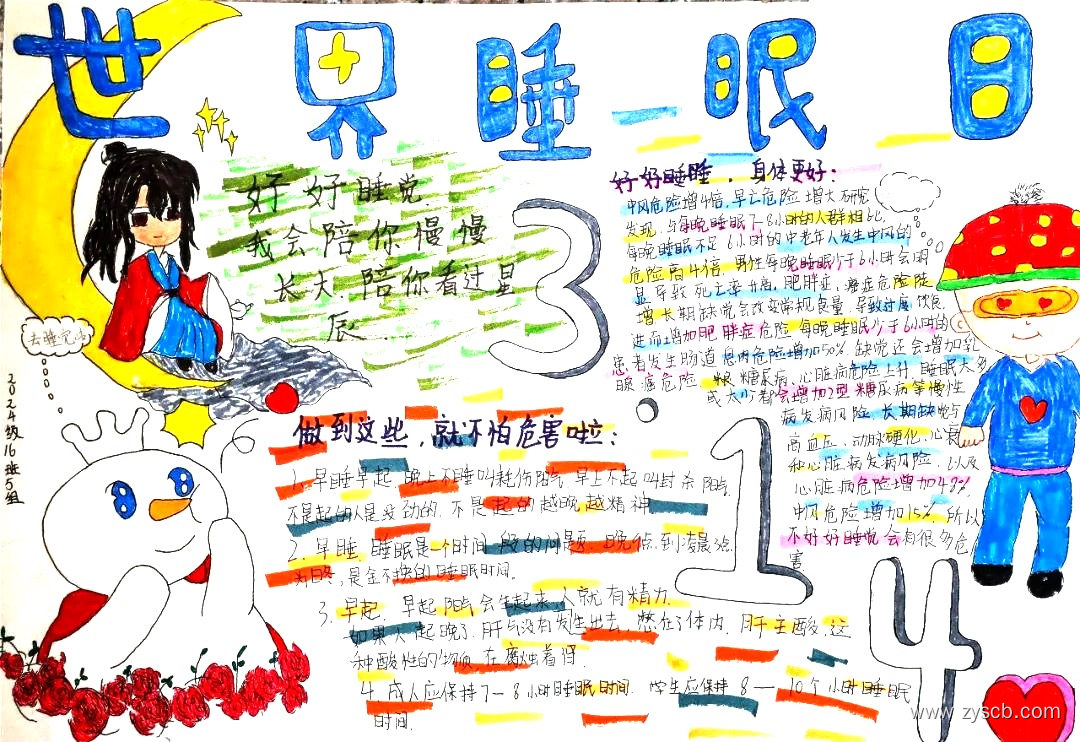 世界睡眠日
好好睡觉
我会陪你慢慢
长大.陪你看过星
辰..
去睡觉吗
2024级16班5组
3.14
好好睡睡,身体更好:
中风危险增4倍.早亡危险增大研究
发现,与每晚睡眠7-8小时的人群相比,
每晚睡眠不足6小时的中老年人发生中风的
危险高4倍.男性每晚睡眠少于6小时会明
显导致死亡率升高,肥胖症,癌症危险陡
增长期缺觉会改变常规食量,导致过度饮食,
进而增加肥胖症危险每晚睡眠少于6小时的
患者发生肠道息肉危险增加50%.缺觉还会增加乳
腺癌危险 糖尿病、心脏病危险上升,睡眠太多
或太少者会增加2型糖尿病等慢性
病发病风险,长期缺觉与
高血压、动脉硬化、心衰
和心脏病发病风险.以及
心脏病危险增加48%
中风危险增加15%.所以
不好好睡觉会有很多危
害
做到这些,就不怕危害啦:
1.早睡早起 晚上不睡叫耗伤阳气 早上不起叫封杀阳气.
不是起的人是没劲的.不是起的越晚越精神
2.早睡.睡眠是一个时间段的问题.晚 点到凌晨3点.
为 ,是金不换的睡眠时间.
3.早起.早起阳气会生起来,人就有精力.
如果人起晚了.肝气没有发生出去,憋在了体内.肝主酸,这
种酸性的物质 在腐蚀着得.
4.成人应保持7—8小时睡眠时间.学生应保持8—10个小时睡眠
时间.
www.zyscb.com